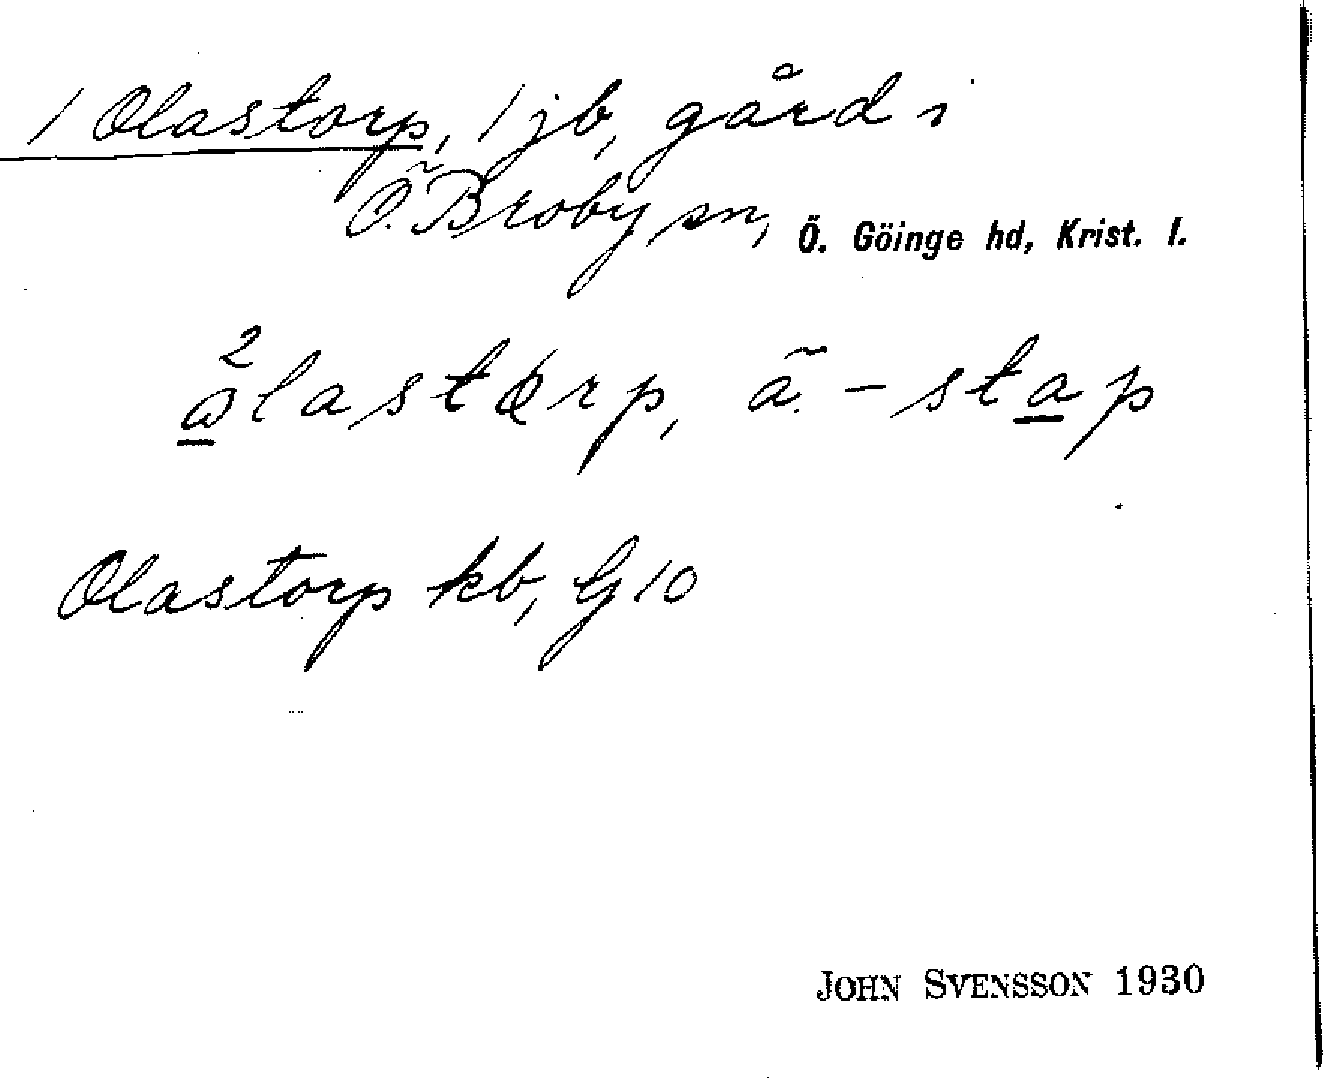 1 Olastorp, 1 jb, gård i
Ö. Broby sn, Ö. Göinge hd, Krist. l.
Olastorp kb, G 10
JOHN SVENSSON 1930